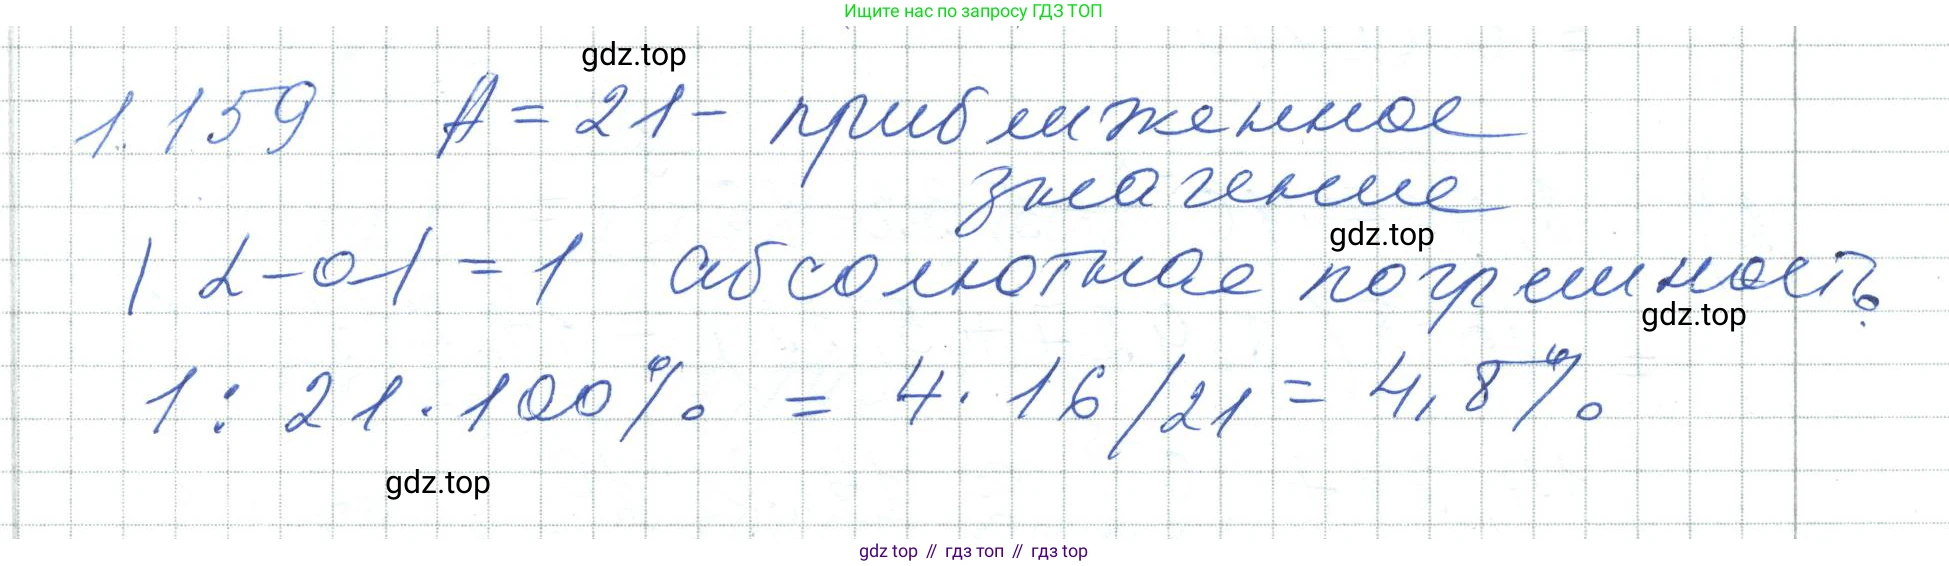 Ищите нас по запросу ГДЗ ТОП
gdz.top
1.159 A = 21 - приближенное
значение
gdz.top
|α-a| = 1 абсолютная погрешность
gdz.top
1 : 21 . 100% = 4 . 16/21 = 4,8%
gdz.top
gdz top // гдз топ // гдз top